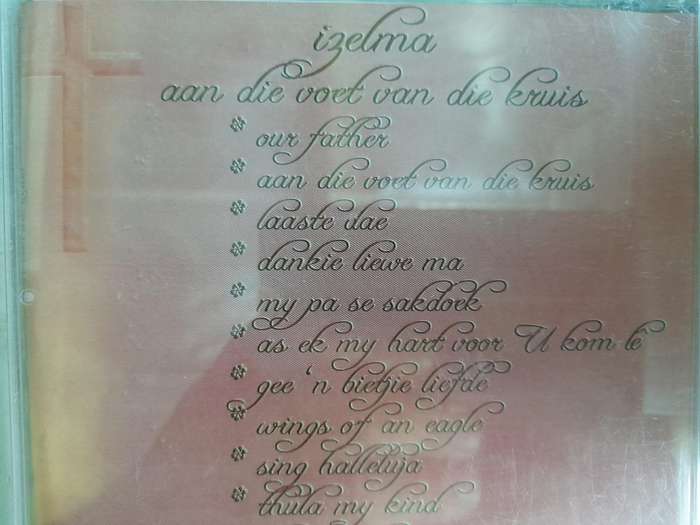 izelma
aan die voet van die kruis
our father
aan die voet van die kruis
laaste dae
dankie liewe ma
my pa se sakdoek
as ek my hart voor U kom lê
gee 'n bietjie liefde
wings of an eagle
sing halleluja
thula my kind